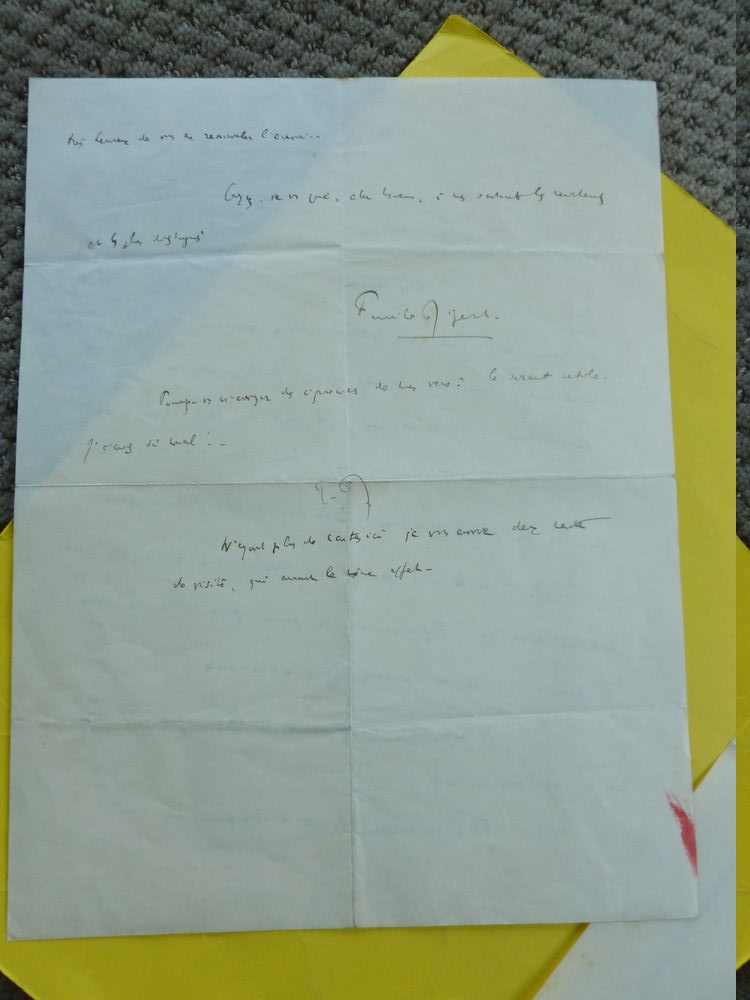 très heureux de vous en renouveler l'envoi...
Croyez, je vous prie, cher Monsieur, à mes sentiments les meilleurs
et les plus distingués
Pourriez-vous m'envoyer des épreuves de mes vers ? Ce serait utile.
J'écris si mal !..
N'ayant plus de cartes ici je vous envoie deux cartes
de visite, qui auront le même effet.